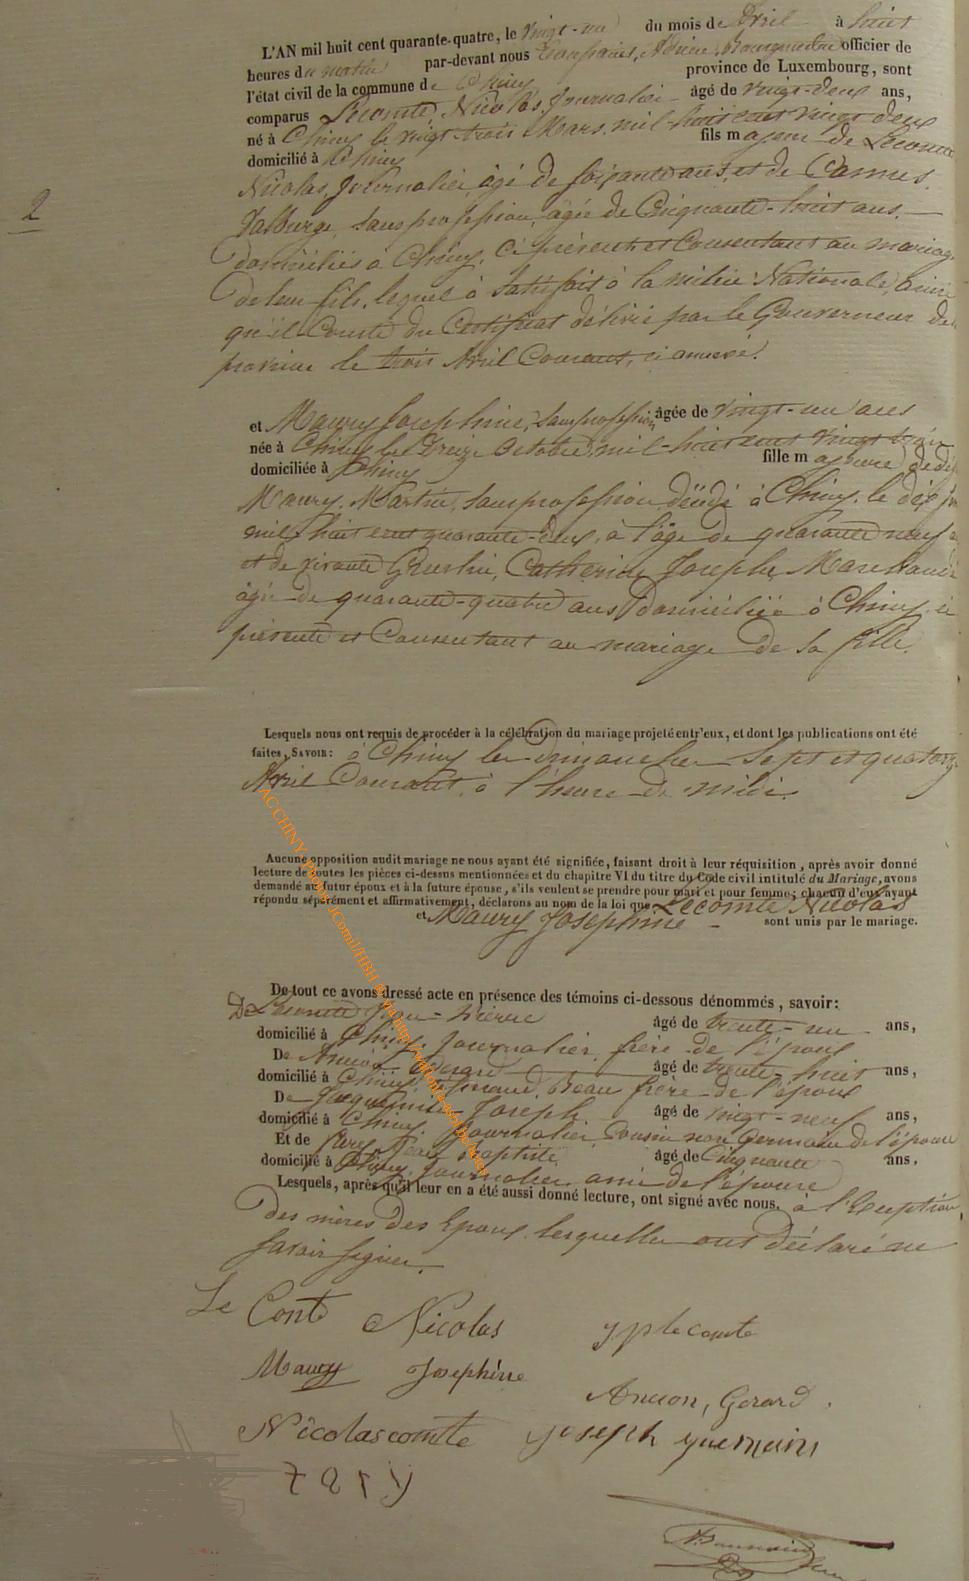 L'AN mil huit cent quarante-quatre, le vingt-un du mois de Avril à huit
heures du matin par-devant nous Adrien, Bourguemestre officier de
l'état civil de la commune de Chiny province de Luxembourg, sont
comparus Lecomte, Nicolas, Journalier âgé de vingt-deux ans,
né à Chiny le vingt trois Mars, mil-huit cent vingt deux
domicilié à Chiny fils majeur de Lecomte
Nicolas, Journalier, agé de soixante ans, et de Camus,
Valburge, sans profession, agée de Cinquante-huit ans.
domiciliés à Chiny, ci présents et Consentant au mariage
de leur fils, lequel à satisfait à la milice Nationale, ainsi
qu'il Conste du Certificat délivré par le Gouverneur de
province le trois Avril Courant, ci annexé.
2
et Maury Josephine, sans profession, âgée de vingt-un ans
née à Chiny le treize Octobre, mil-huit cent vingt trois
domiciliée à Chiny fille majeure de
Maury, Martin, sans profession, décédé à Chiny, le dix
mil huit cent quarante-deux, à l'âge de quarante neuf
et de vivante Catherine Josephe Marchand
agée de quarante-quatre ans domiciliée à Chiny, ci
présente et Consentant au mariage de sa fille.
Lesquels nous ont requis de procéder à la célébration du mariage projeté entr'eux, et dont les publications ont été
faites, SAVOIR: à Chiny les dimanches sept et quatorze
Avril Courant, à l'heure de midi.
Aucune opposition audit mariage ne nous ayant été signifiée, faisant droit à leur réquisition, après avoir donné
lecture de toutes les pièces ci-dessus mentionnées et du chapitre VI du titre du Code civil intitulé du Mariage, avons
demandé au futur époux et à la future épouse, s'ils veulent se prendre pour mari et pour femme; chacun d'eux ayant
répondu séparément et affirmativement, déclarons au nom de la loi que Lecomte Nicolas
et Maury Josephine sont unis par le mariage.
De tout ce avons dressé acte en présence des témoins ci-dessous dénommés, savoir:
De Lecomte Jean-Pierre âgé de trente-un ans,
domicilié à Chiny, Journalier, frère de l'époux
De Ancion Gérard âgé de trente-huit ans,
domicilié à Chiny, Beau frère de l'époux
De Joseph âgé de vingt-neuf ans,
domicilié à Chiny, Journalier, Cousin non Germain de l'épouse
Et de Jean Baptiste âgé de Cinquante ans.
domicilié à Chiny, Journalier, ami de l'épouse
Lesquels, après qu'il leur en a été aussi donné lecture, ont signé avec nous. à l'Exception,
des mères des Epoux lesquelles ont déclaré ne
savoir signer.
Le Cont Nicolas jp lecomte
Maury Josephine
Ancion, Gerard.
Nicolascomte Joseph